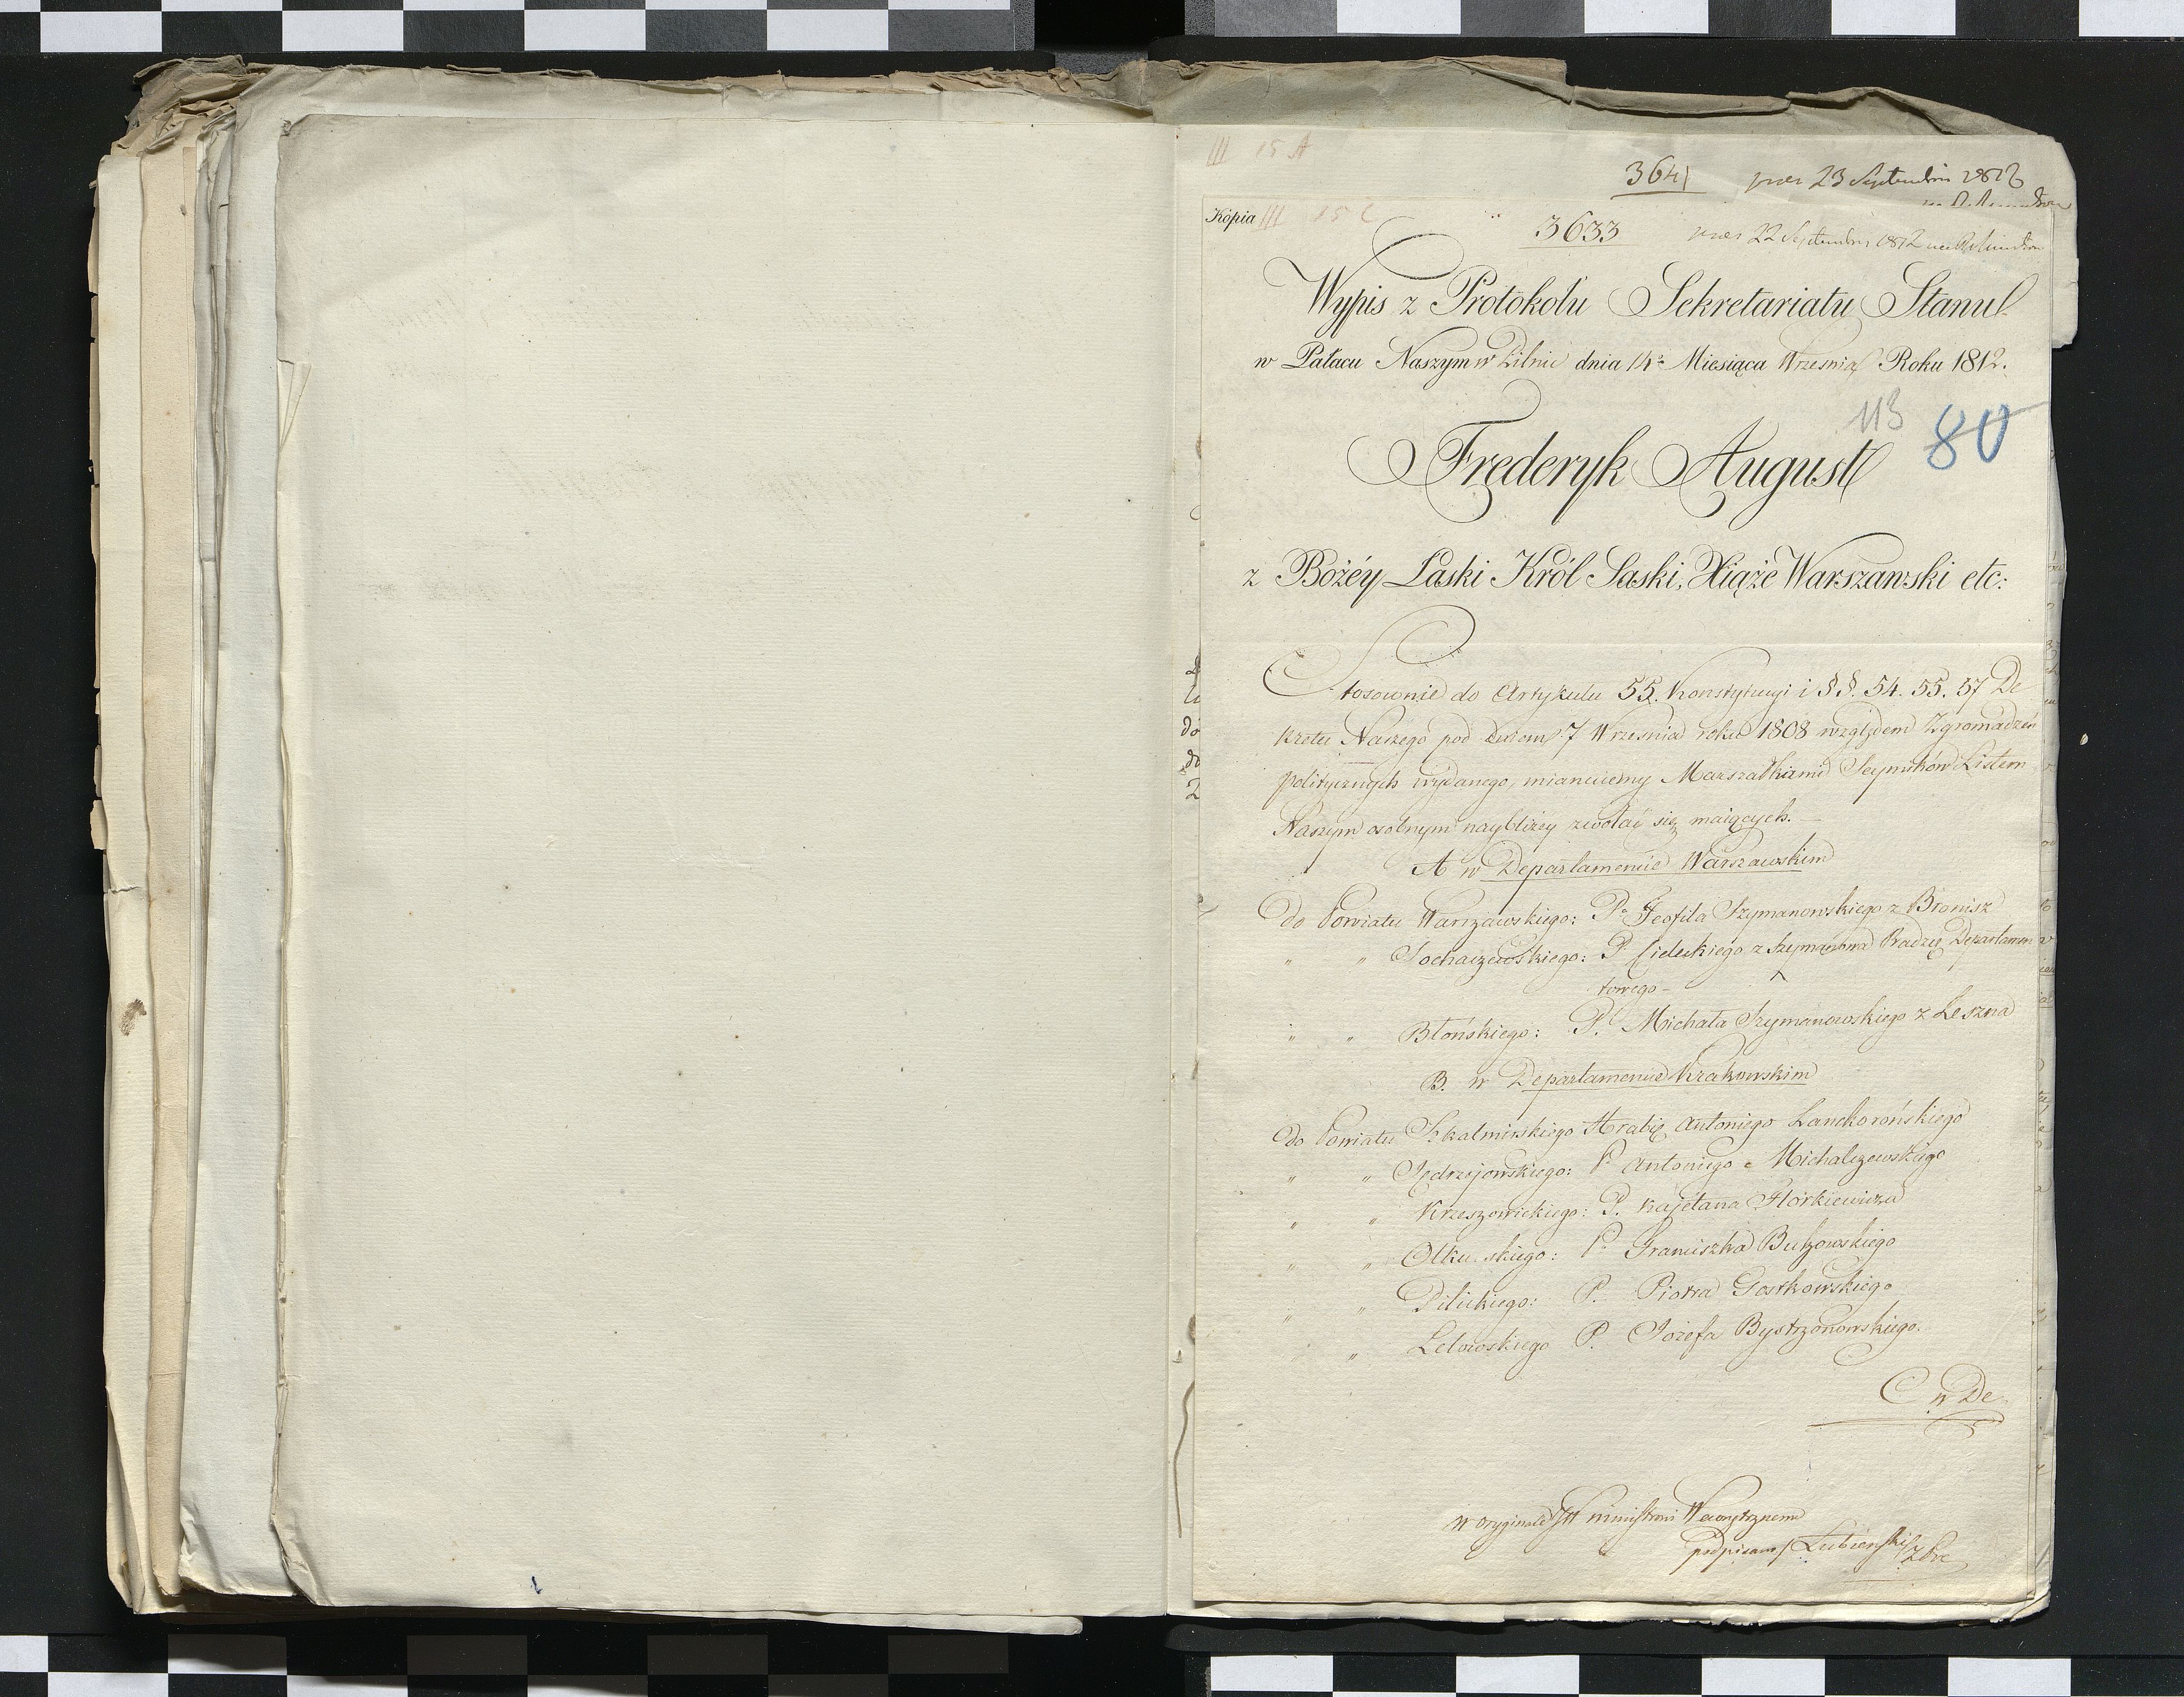 III 15 A
3641 praes 23 Septembris 1812
Kopia III 15 C
3633 praes 22 Septembris 1812
Wypis z Protokołu Sekretariatu Stanu
w Pałacu Naszym w Pilnic dnia 14. Miesiąca Września Roku 1812.
113 80
Frederyk August
z Bożéy Łaski Król Saski, Xiąże Warszawski etc:
Stosownie do Artykułu 55. Konstytucyi i §§. 54. 55. 57 De
kretu Naszego pod dniem 7 Września roku 1808 względem Zgromadzeń
politycznych wydanego, mianujemy Marszałkami Seymików Listem
Naszym osobnym naybliżey zwołać się maiących.
A w Departamencie Warszawskim
do Powiatu Warszawskiego: P. Teofila Szymanowskiego z Bronisz
" " Sochaczewskiego: P. Cieleckiego z Szymanowa Radzcę Departamen
towego
" " Błońskiego: P. Michała Szymanowskiego z Leszna
B. w Departamencie Krakowskim
do Powiatu Szkalmirskiego Hrabię Antoniego Lanckorońskiego
" " Jędrzejowskiego: P. Antoniego Michalczewskiego
" " Krzeszowickiego: P. Kajetana Florkiewicza
" " Olkuskiego: P. Franciszka Bukowskiego
" " Pilickiego: P. Piotra Gostkowskiego
" " Lelowskiego P. Józefa Bystrzonowskiego.
C w De
w oryginale JW Ministrowi Wewnętrznemu
podpisano Łubieński